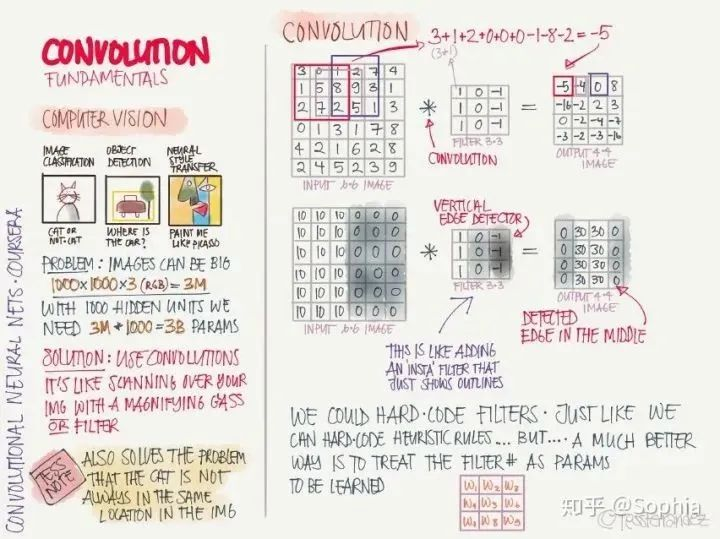 CONVOLUTION
FUNDAMENTALS
COMPUTER VISION
IMAGE CLASSIFICATION
OBJECT DETECTION
NEURAL STYLE TRANSFER
CAT OR NOT-CAT
WHERE IS THE CAR?
PAINT ME LIKE PICASSO
PROBLEM: IMAGES CAN BE BIG
1000×1000×3 (RGB) = 3M
WITH 1000 HIDDEN UNITS WE
NEED 3M * 1000 = 3B PARAMS
SOLUTION: USE CONVOLUTIONS
IT'S LIKE SCANNING OVER YOUR
IMG WITH A MAGNIFYING GASS
OR FILTER
TESS NOTE
ALSO SOLVES THE PROBLEM
THAT THE CAT IS NOT
ALWAYS IN THE SAME
LOCATION IN THE IMG
CONVOLUTIONAL NEURAL NETS · COURSERA
CONVOLUTION
3+1+2+0+0+0-1-8-2=-5
(3*1)
3 0 1 2 7 4
1 5 8 9 3 1
2 7 2 5 1 3
0 1 3 1 7 8
4 2 1 6 2 8
2 4 5 2 3 9
INPUT 6·6 IMAGE
*
CONVOLUTION
1 0 -1
1 0 -1
1 0 -1
FILTER 3·3
=
-5 -4 0 8
-16 -2 2 3
0 -2 -4 -7
-3 -2 -3 -16
OUTPUT 4·4
IMAGE
10 10 10 0 0 0
10 10 10 0 0 0
10 10 10 0 0 0
10 10 10 0 0 0
10 10 10 0 0 0
10 10 10 0 0 0
INPUT 6·6 IMAGE
*
VERTICAL
EDGE DETECTOR
1 0 -1
1 0 -1
1 0 -1
FILTER 3·3
=
0 30 30 0
0 30 30 0
0 30 30 0
0 30 30 0
OUTPUT 4·4
IMAGE
DETECTED
EDGE IN THE MIDDLE
THIS IS LIKE ADDING
AN 'INSTA' FILTER THAT
JUST SHOWS OUTLINES
WE COULD HARD·CODE FILTERS · JUST LIKE WE
CAN HARD·CODE HEURISTIC RULES... BUT.... A MUCH BETTER
WAY IS TO TREAT THE FILTER # AS PARAMS
TO BE LEARNED
W1 W2 W3
W4 W5 W6
W7 W8 W9
知乎 @Sophia
©TessFerrandez